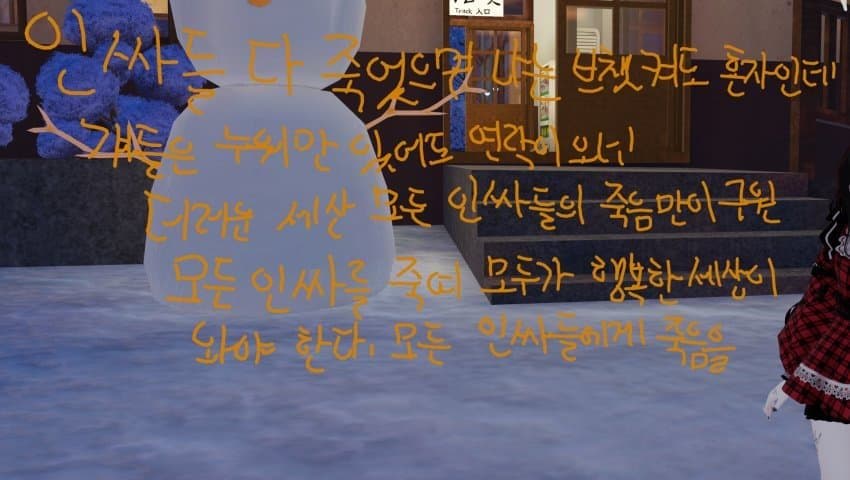 Track 入口
인싸들 다 죽었으면 나는 브챗 켜도 혼자인데
걔들은 누워만 있어도 연락이 오네
더러운 세상 모든 인싸들의 죽음만이 구원
모든 인싸를 죽여 모두가 행복한 세상이
와야 한다. 모든 인싸들에게 죽음을